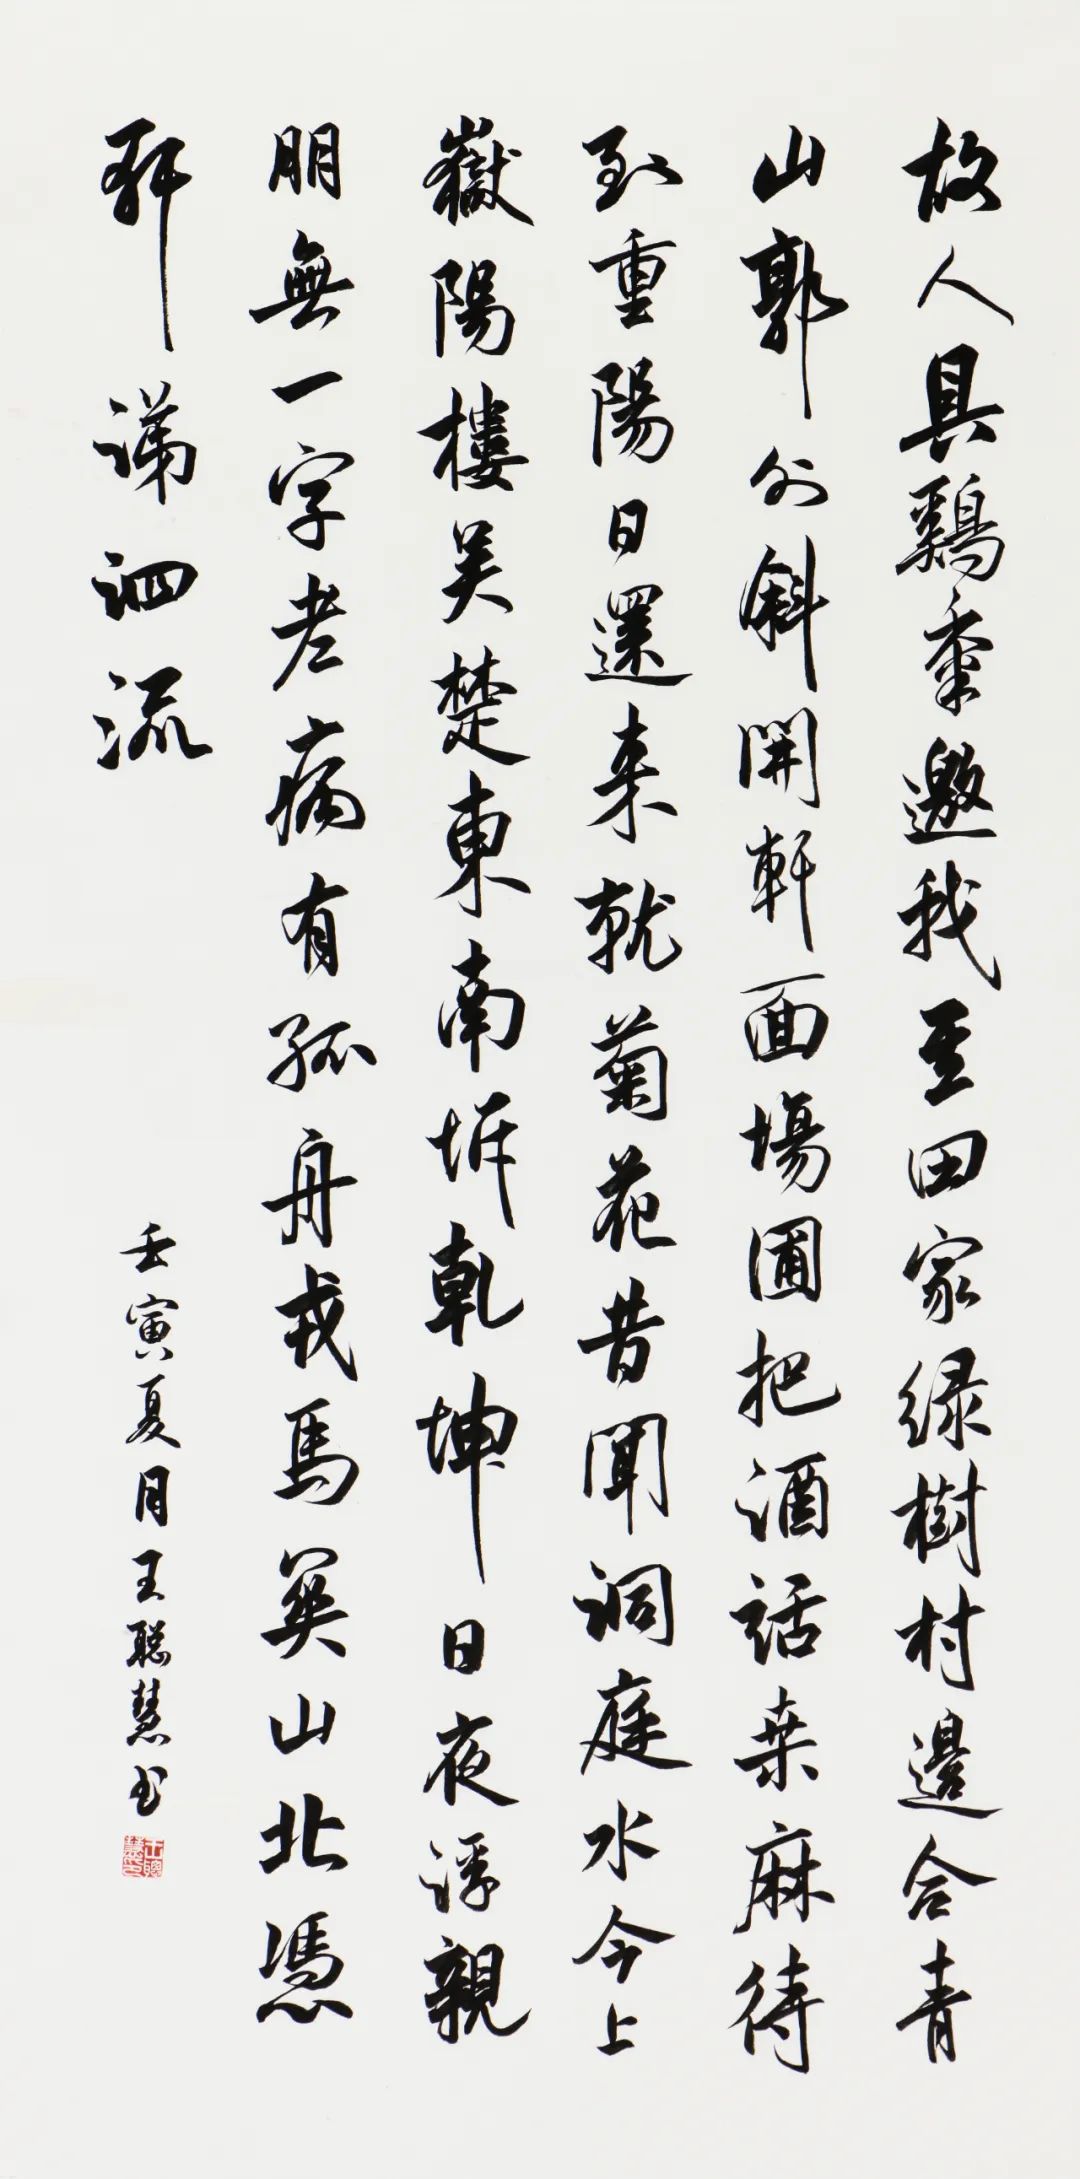 故人具鷄黍邀我至田家绿樹村邊合青
山郭外斜開軒面場圃把酒話桑麻待
到重陽日還来就菊花昔聞洞庭水今上
嶽陽樓吴楚東南坼乾坤日夜浮親
朋無一字老病有孤舟戎馬关山北憑
軒涕泗流
壬寅夏月王聪慧书